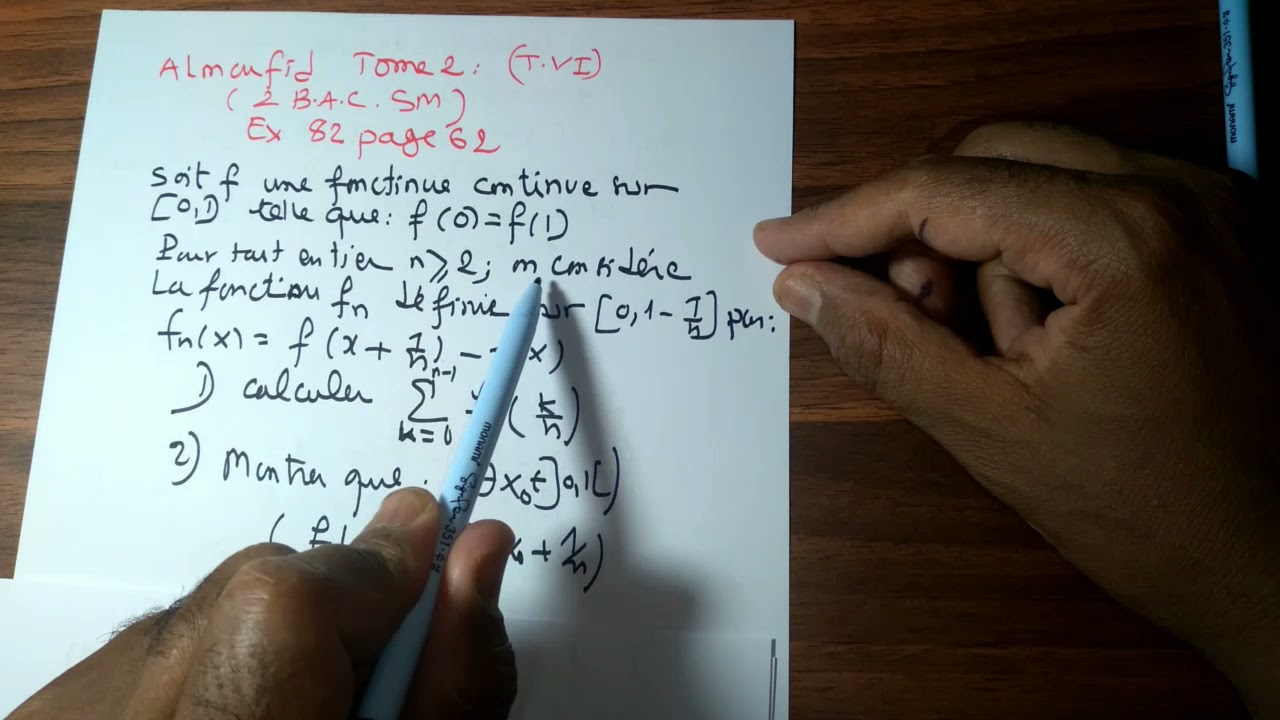 Almoufid Tome 2: (T.VI)
(2 B.A.C. SM)
Ex 82 page 62
Soit f une fonctinue continue sur
[0,1] telle que: f(0)=f(1)
Pour tout entier n⩾2; on considére
La fonction fn définie sur [0,1-1/n] par:
fn(x) = f(x+1/n) - x)
1) calculer ∑ n-1 k=0 (k/n)
2) Montrer que: ∃x₀∈]0,1[)
( f( + 1/n)
monami
monami